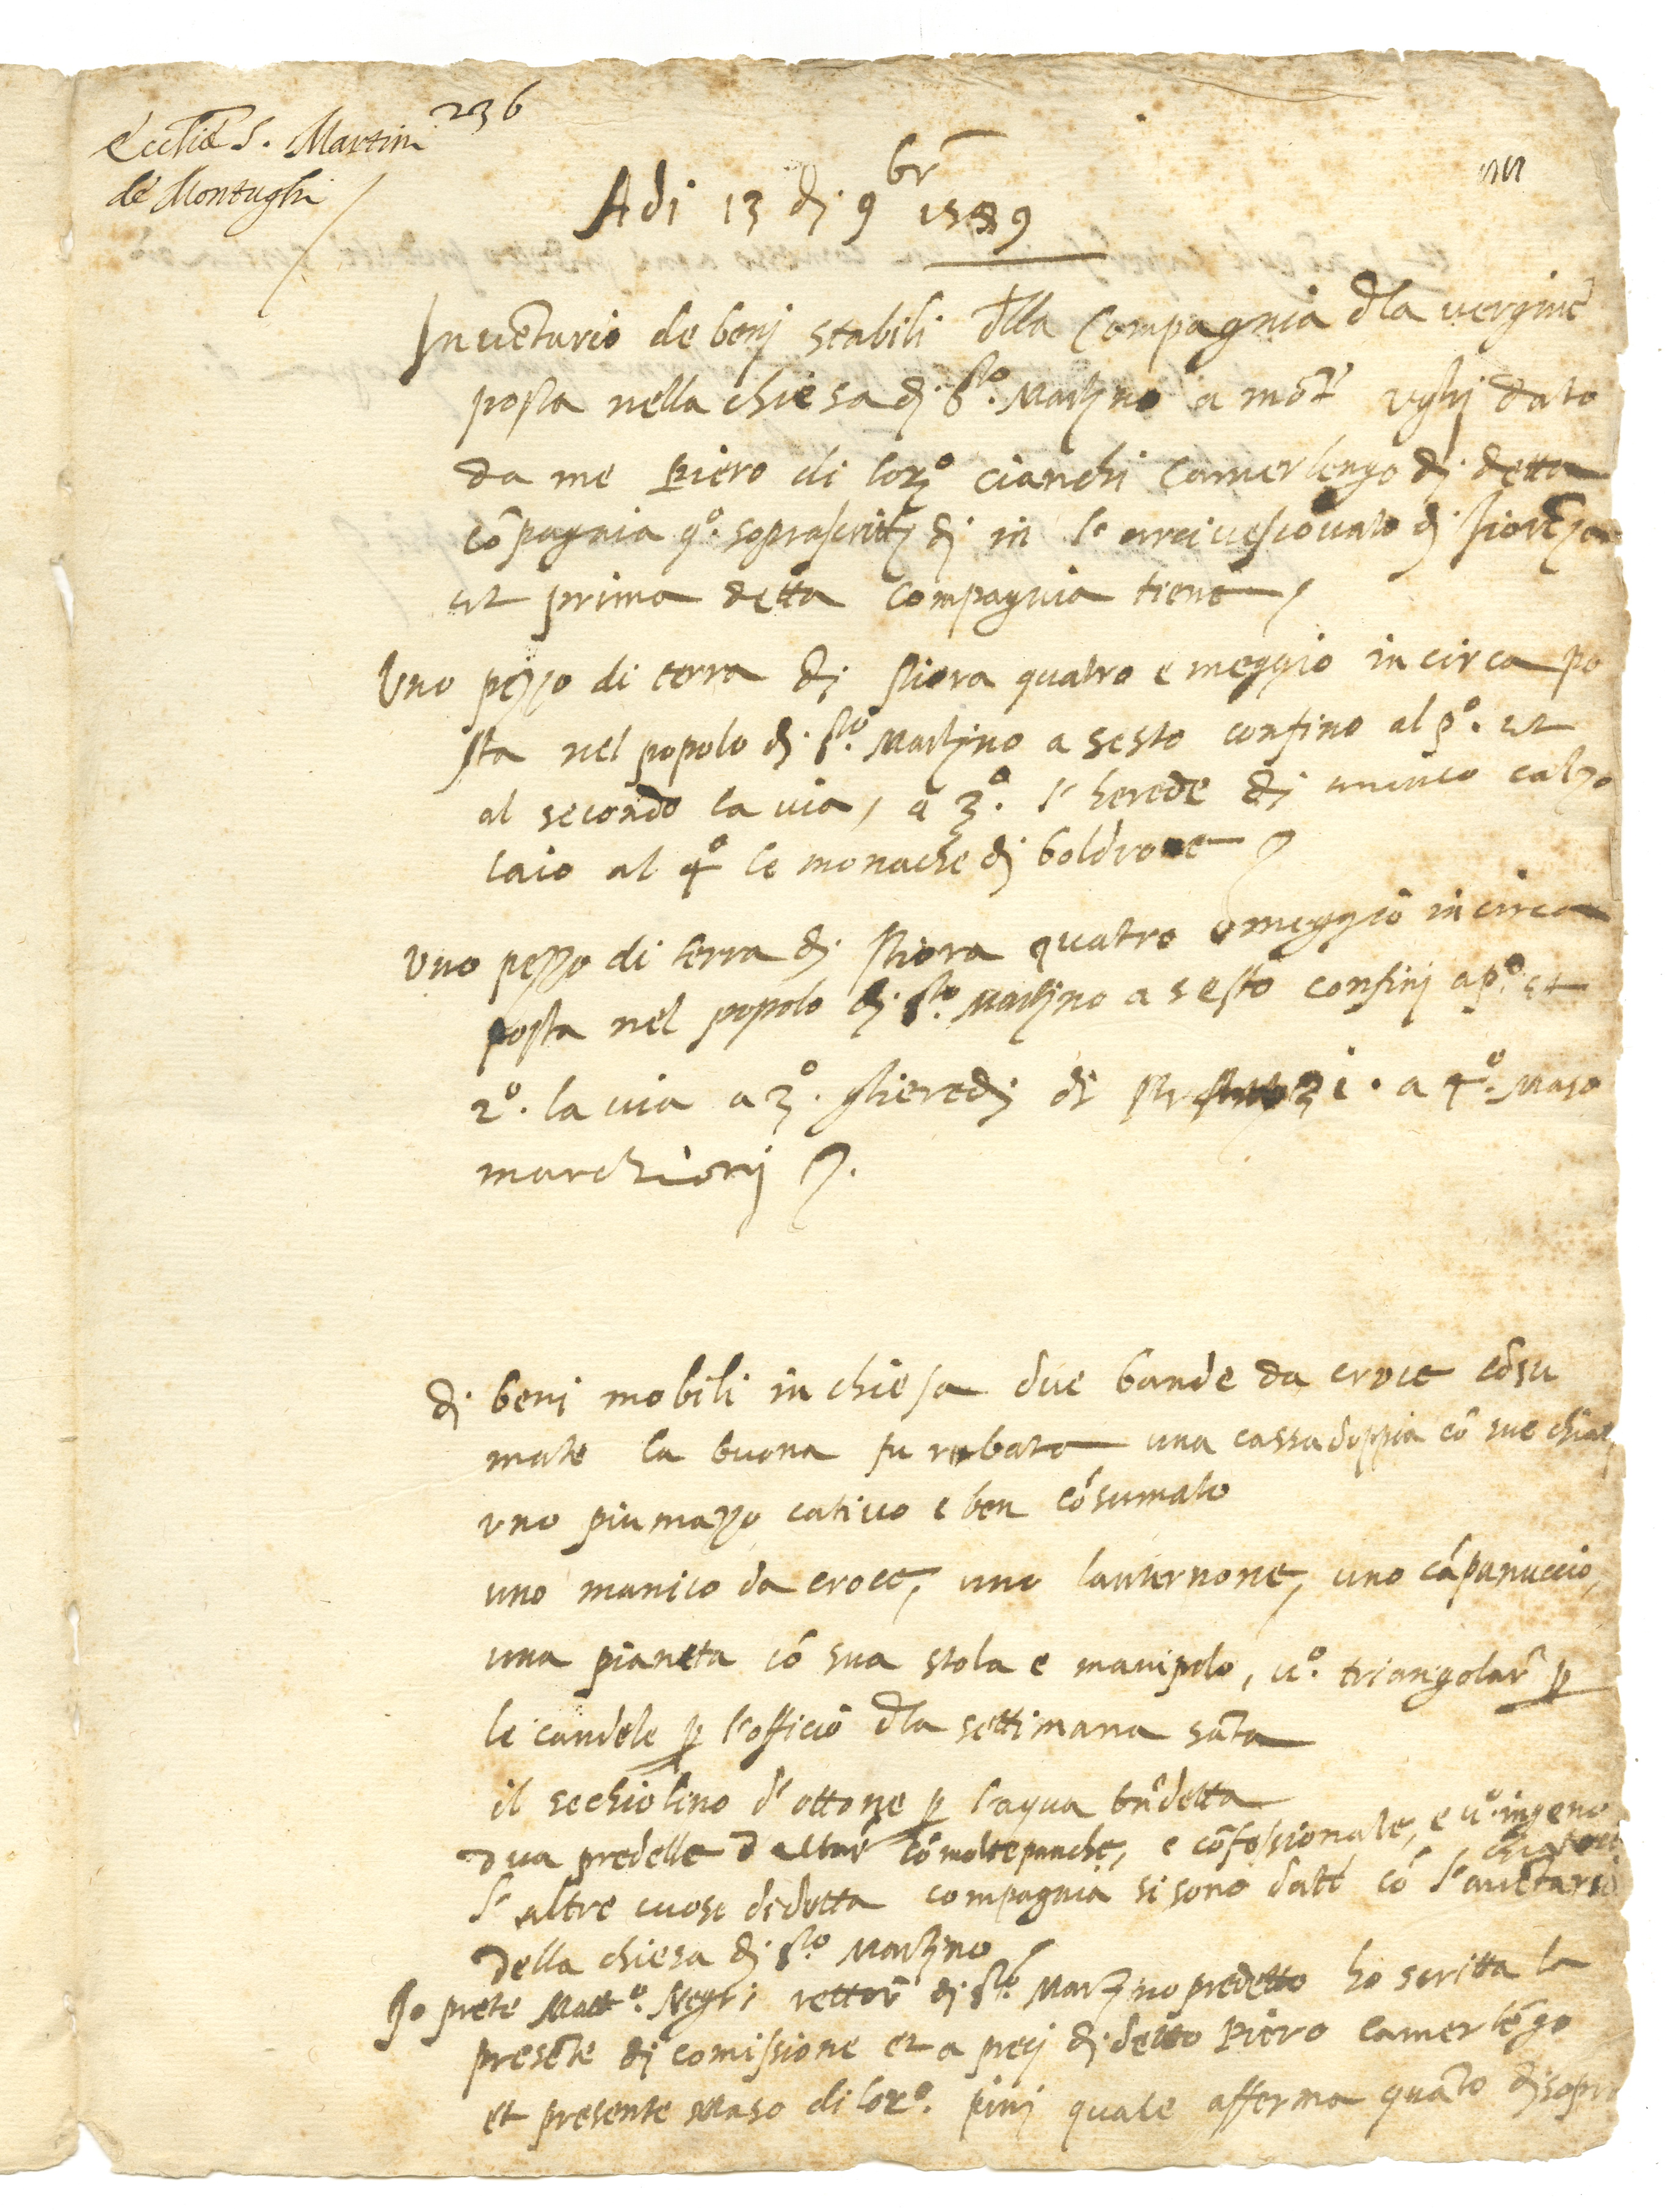 Eccl̃iẽ S. Martini 236
de Montughi
Adi 13 di 9br̃ 1589
Inuẽtario de benj stabili d̃lla Compagnia d̃la uergine
posta nella chiesa dj S.to Martino a mõte Vghj dato
da me Piero di lorz.o cianchi Camerlengo dj detta
cõpagnia q.o soprascritto dj in l'arciuescouato dj fiorẽza
et prima detta compagnia tiene
Uno pezzo di terra dj stiora quatro e meggio in circa po
sta nel popolo dj S.to Martino a sesto confino al p.o et
al secondo la uia, a 3.o l'herede dj calzo
laio al 4.o le monache dj boldrone
Vno pezzo di terra dj stiora quatro e meggio in circa
posta nel popolo dj S.to Martino a sesto confinj a p.o et
2.o la uia a 3.o glieredj di a 4.o Maso
marchionj
dj beni mobili in chiesa due bande da croce cõsu
mate la buona fu rubata una cassa doppia cõ sue chiaui
vno piumazo catiuo e ben cõsumato
uno manico da croce, uno lanternone, uno cãpanuccio,
una pianeta cõ sua stola e manipolo, u.o triangolar̃ p
le candele p l'officio d̃la settimana sãta
il sechiolino d'ottone p l'aqua bñdetta
dua predelle d altar̃ cõ molte panche, e cõfessionale, e u.o ingeno
l'altre cuose dedetta compagnia si sono date cõ l'auẽtario
della chiesa dj S.to Martino
Io prete Matt.o Negri rettor̃ dj S.to Martino predetto ho scritta la
presẽte dj comissione et a precj dj detto Piero camerlẽgo
et presente Maso di lorz.o pinj quale afferma quãto dj sopra